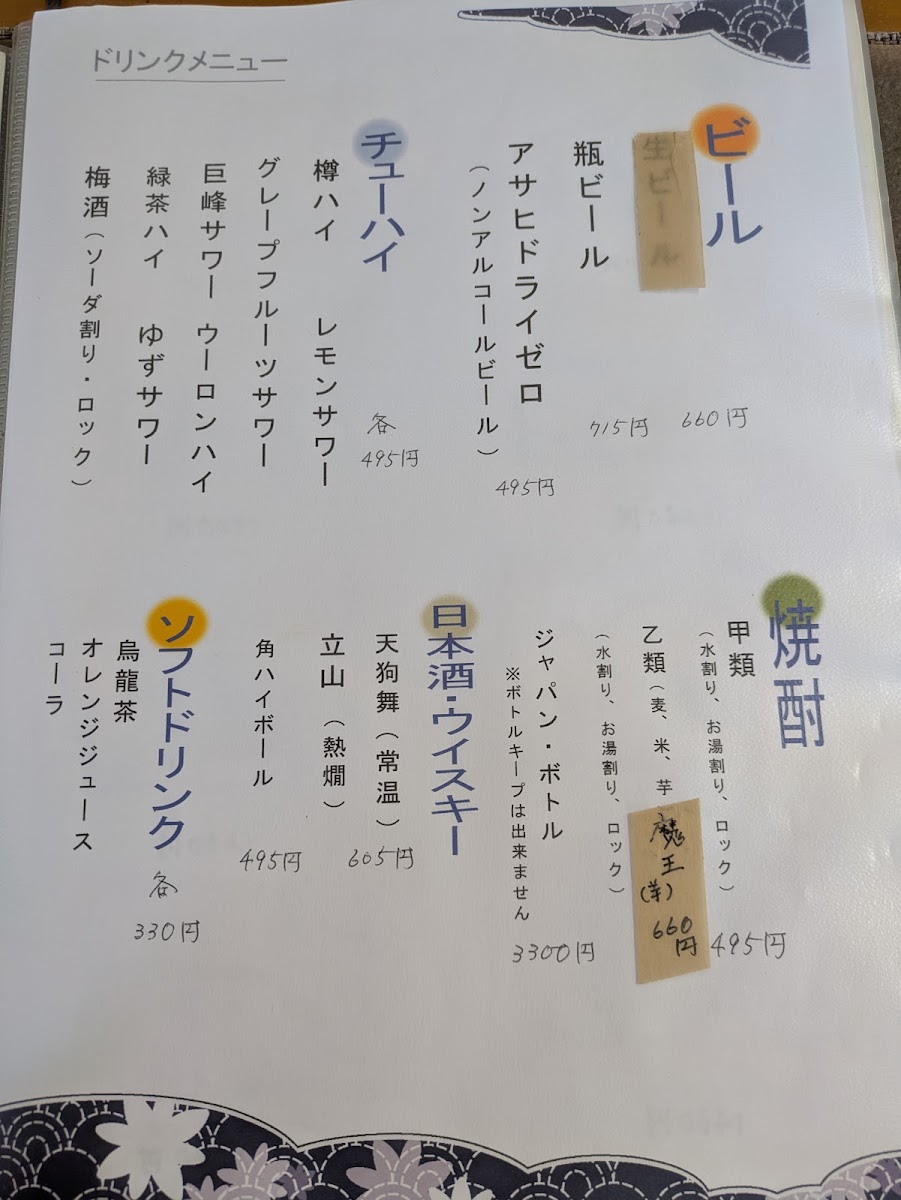 ドリンクメニュー
ビール
生ビール
660円
瓶ビール
715円
アサヒドライゼロ
（ノンアルコールビール）
495円
チューハイ
各
495円
樽ハイ レモンサワー
グレープフルーツサワー
巨峰サワー ウーロンハイ
緑茶ハイ ゆずサワー
梅酒（ソーダ割り・ロック）
焼酎
甲類
（水割り、お湯割り、ロック）
495円
乙類（麦、米、芋
魔王
（芋）
660
円
（水割り、お湯割り、ロック）
ジャパン・ボトル
※ボトルキープは出来ません
3300円
日本酒・ウイスキー
天狗舞（常温）
605円
立山（熱燗）
角ハイボール
495円
ソフトドリンク
各
330円
烏龍茶
オレンジジュース
コーラ